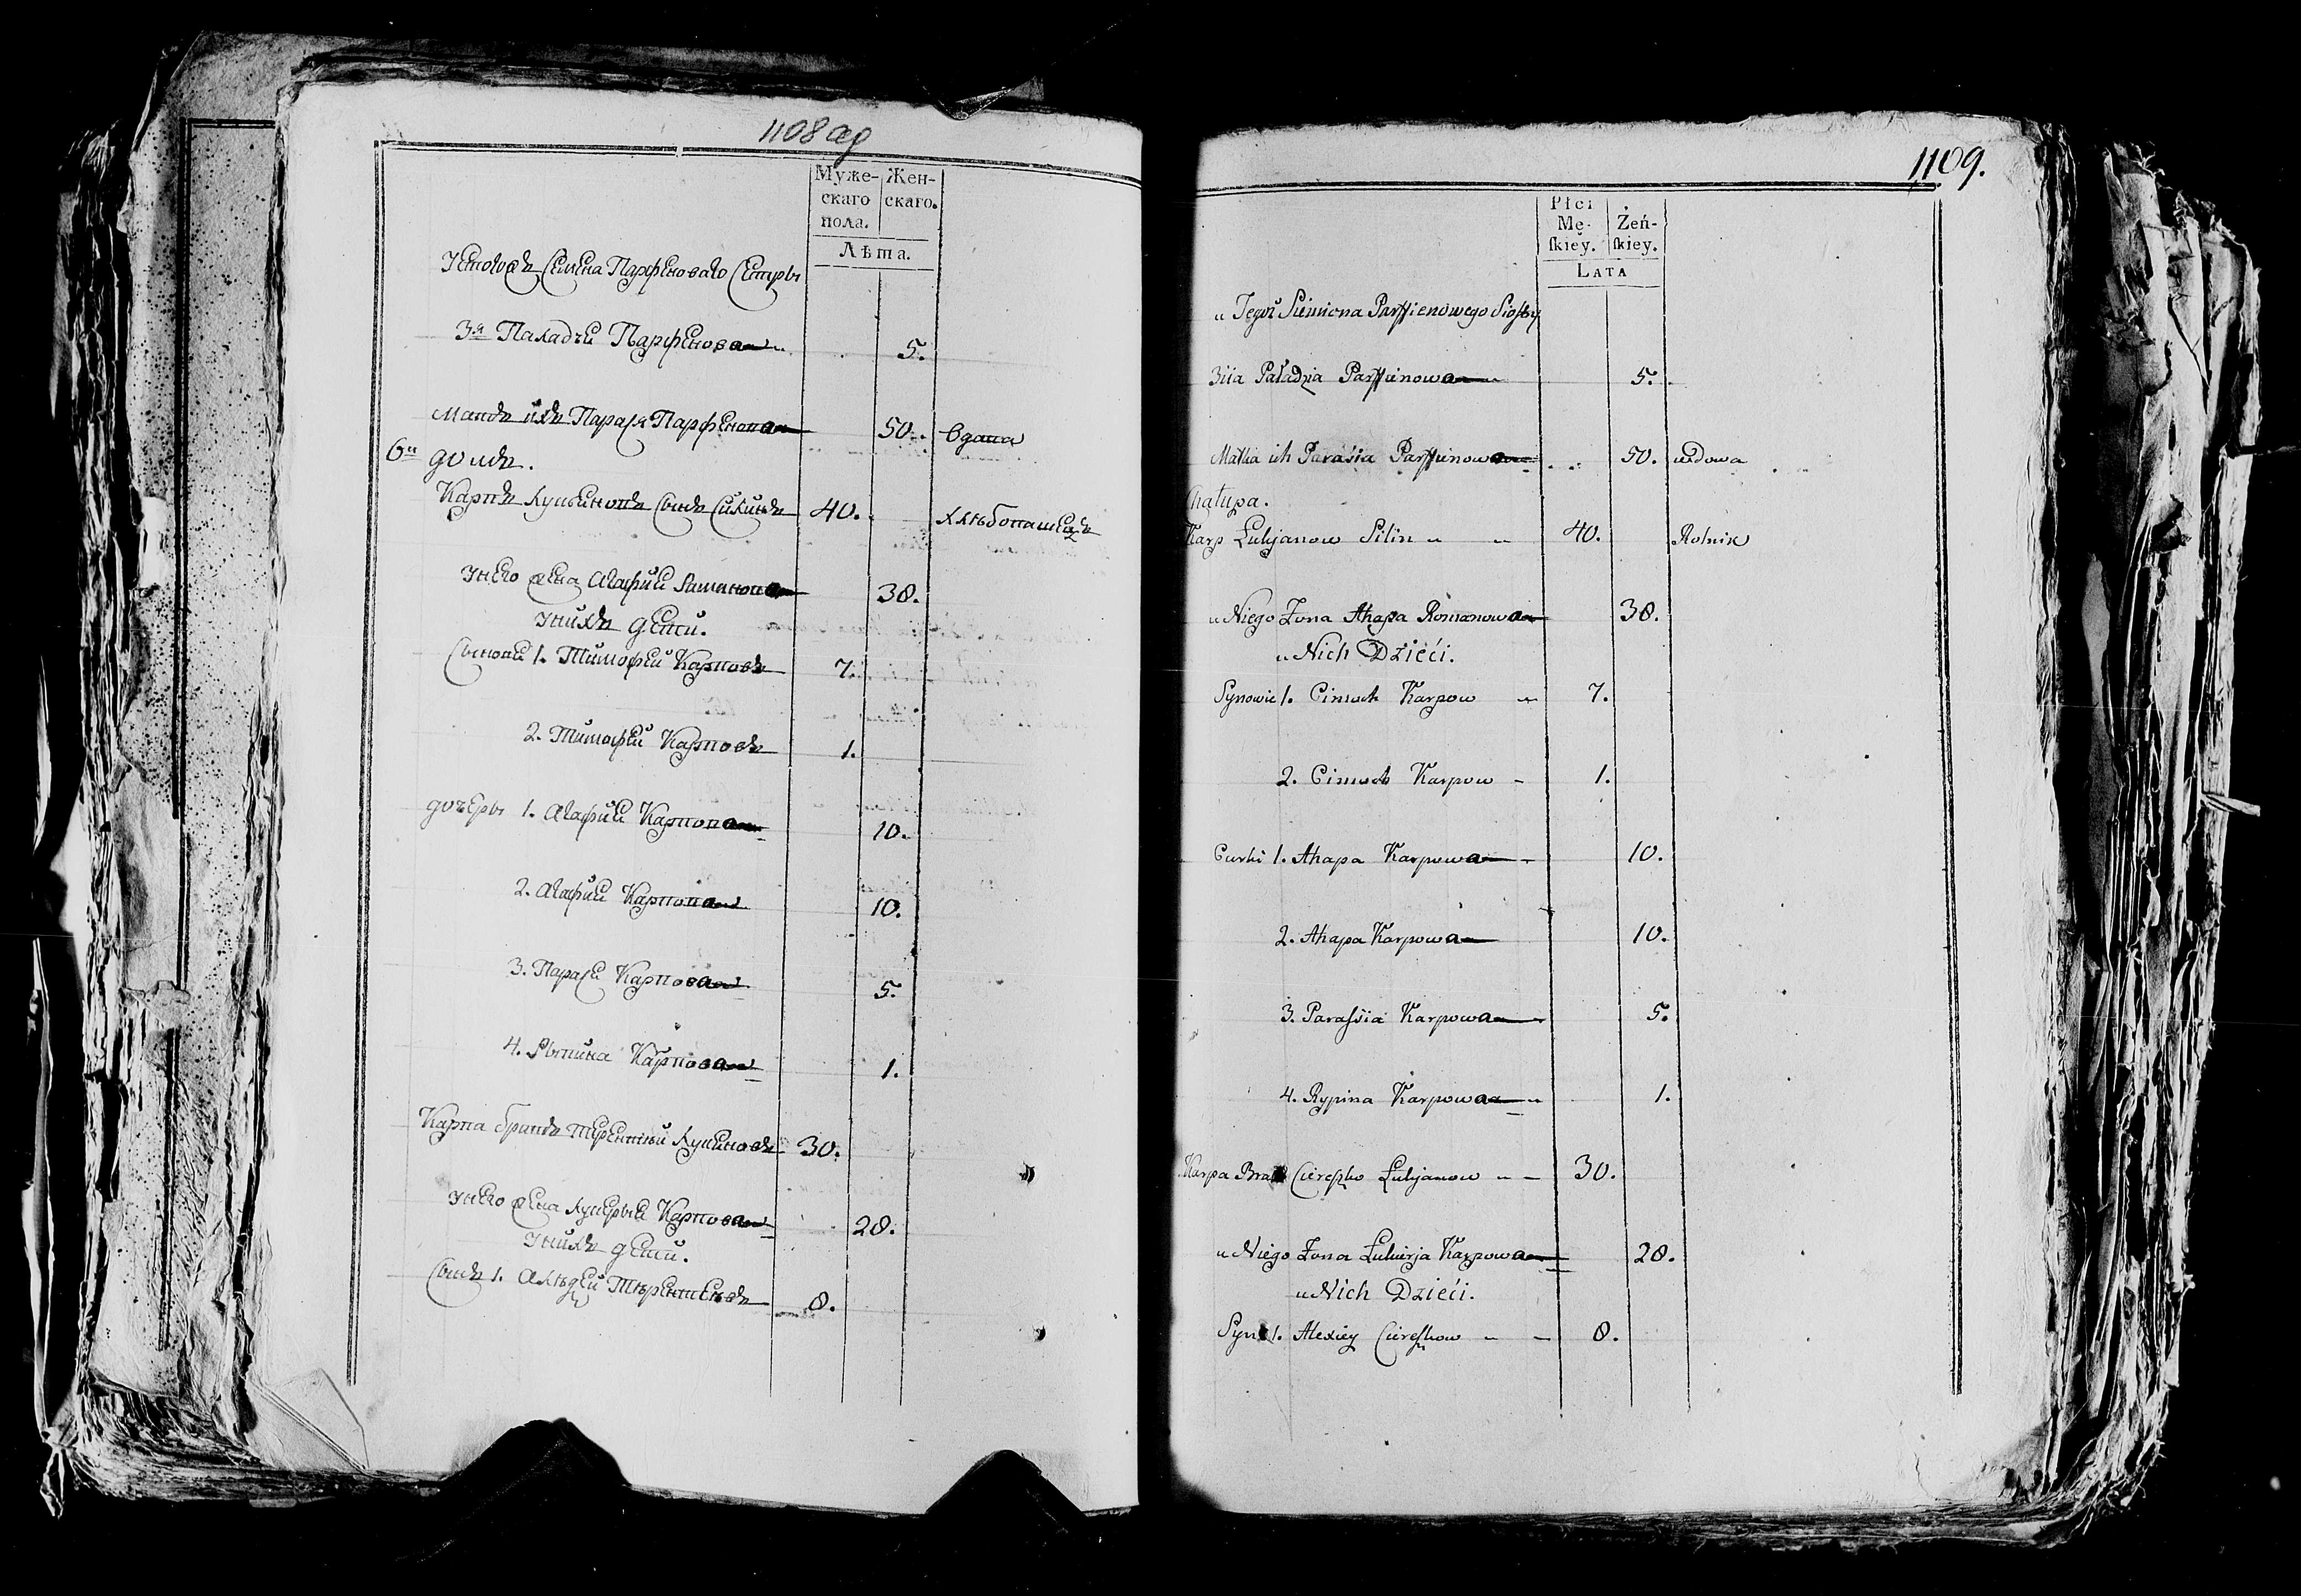 1108 об
Муже- Жен-
скаго скаго.
пола.
Лѣта.
Утогожъ Семена Парфеноваго Сестры
3я Паладѣи Парфенова 5.
Матъ ихъ Парася Парфенова 50. вдова
6й домъ.
Карпъ Лукьяновъ сынъ Силинъ 40. Хлѣбопашецъ
Унего жена Агафии Раманова 38.
Унихъ дети.
Сыновии 1. Тимофѣй Карповъ 7.
2. Тимофѣй Карповъ 1.
дочеры 1. Агафии Карпова 10.
2. Агафии Карпова 10.
3. Параси Карпова 5.
4. Рыпина Карпова 1.
Карпа братъ Терентий Лукиновъ 30.
Унего жена Лукерыи Карпова 28.
Унихъ дети.
Сынъ 1. Терентиевъ 8.
1109.
Płci
Mę- Żeń-
ſkiey. ſkiey.
LATA
u Tegoż Siemiona Parffienowego Siostry
3iia Paładzia Parffienowa 5.
Matka ich Parasia Parffienowa 50. wdowa
Chałupa.
Karp Łukjanow Silin 40. Rolnik
u Niego Żona Ahapa Romanowa 38.
u Nich Dzieći.
Synowie 1. Cimoch Karpow 7.
2. Cimoch Karpow 1.
Curki 1. Ahapa Karpowa 10.
2. Ahapa Karpowa 10.
3. Paraſsia Karpowa 5.
4. Rypina Karpowa 1.
Karpa Brat Ciereszko Łukjanow 30.
u Niego Żona Łukierja Karpowa 28.
u Nich Dzieći.
Syn 1. Alexiey Ciereszkow 8.